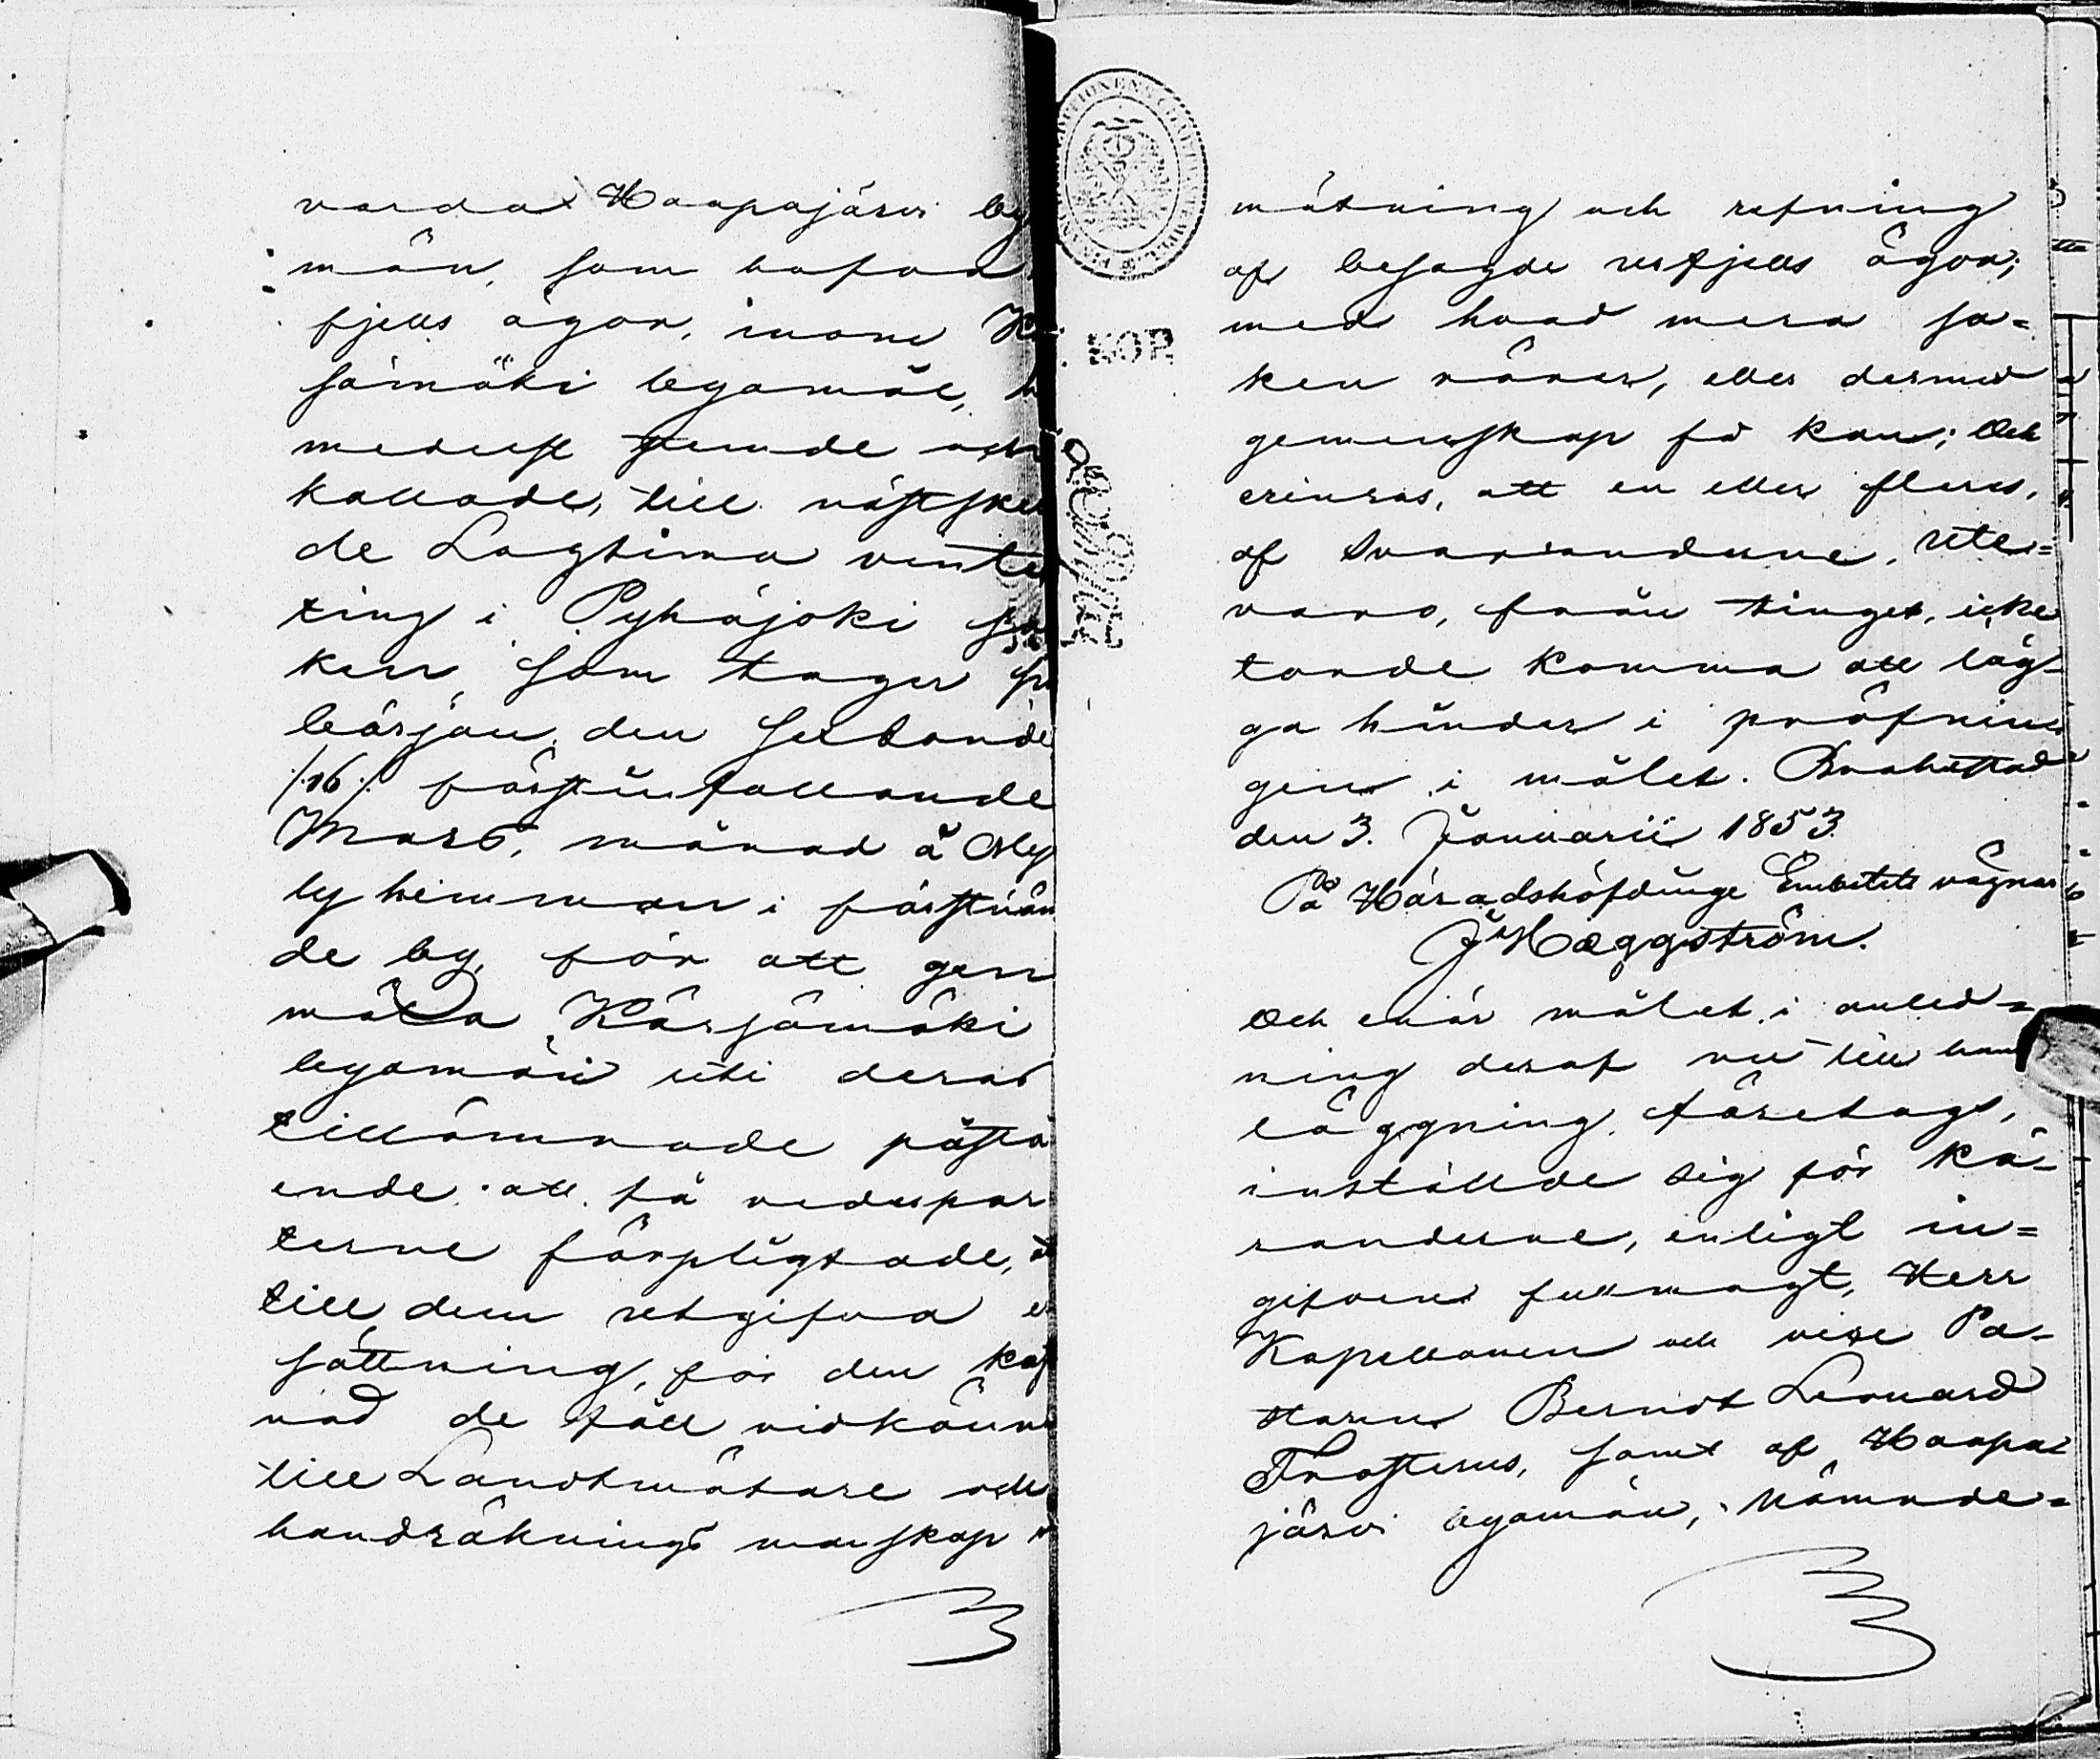 varda Haapajärvi by
män, som hafva
fjells ägor, inom K
sämäki byamål,
medelst stemde och
kallade, till nästskee
de Lagtima vinter
ting i Pyhäjoki so
ken, som tager sin
början den sextonde
/:16:/ förstinfallande
Mars, månad å Oly
ly hemman i förstnäm
de by, för att gen
mäla Kärsämäki
byamän uti deras
tillämnade påstå
ende att få vederpar
terne förpligtade, at
till dem utgifva er
sättning, för den kost
nad de fått vidkänna
till Landtmätare och
handräknings manskap
mätning och refning
af besagde utfjells ägor;
med hvad mera sa=
ken rörer, eller dermed
gemenskap få kan; Och
erinras, att en eller fleres,
af Svarandenne, ute=
varo, från tinget, icke
torde komma att läg-
ga hinder i pröfnin
gen i målet. Brahestad
den 3. Januarii 1853.
På Häradshöfdinge Embetets vägnar
J Hæggström.
Och enär målet i anled=
ning deraf nu till hand
läggning företags,
inställde sig för Kä-
randerne, enligt in=
gifven fullmagt, Herr
Kapellanen och vice Pa-
storn Berndt Leonard
Frosterus, samt af Haapa=
järvi byamän, Nämnde=
KOP.